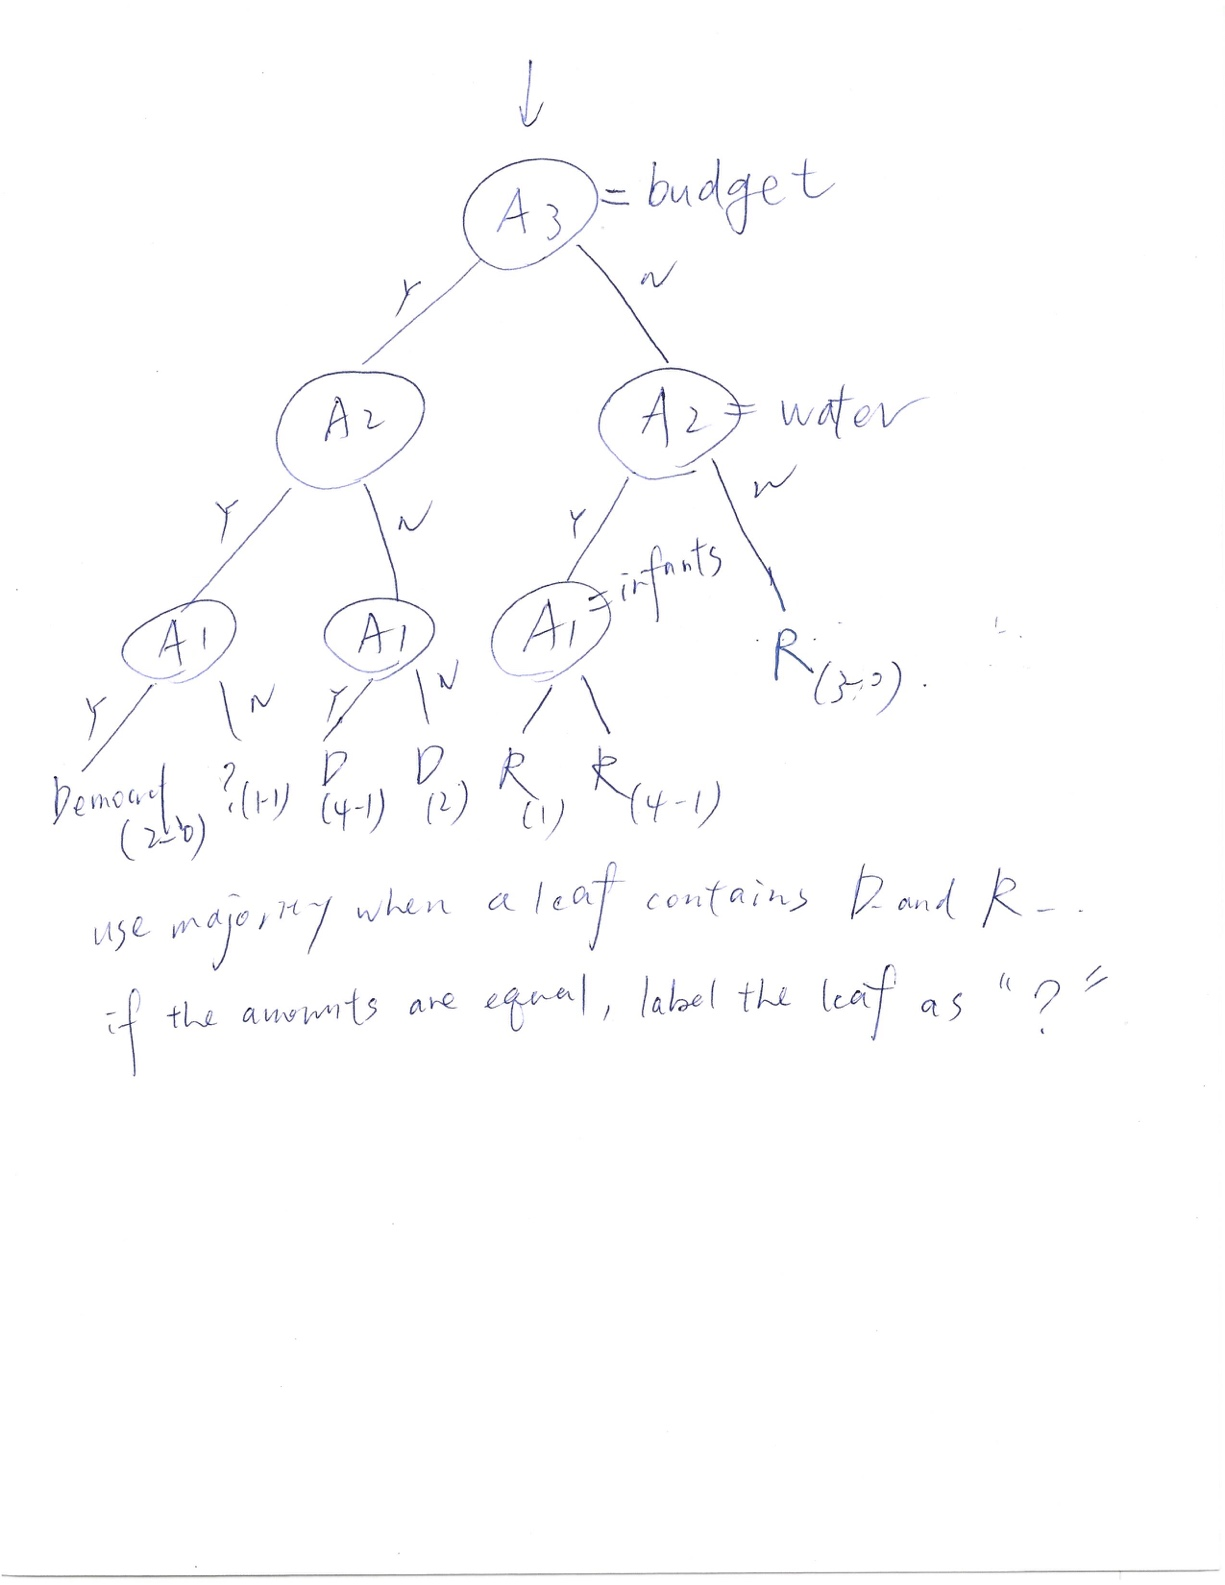 A3 = budget
Y N
A2 A2 = water
Y N Y N
A1 A1 A1 = infants R (3-0).
Y N Y N
Democrat ? (1-1) D D R R
(2-0) (4-1) (2) (1) (4-1)
use majority when a leaf contains D and R-.
if the amounts are equal, label the leaf as "?"